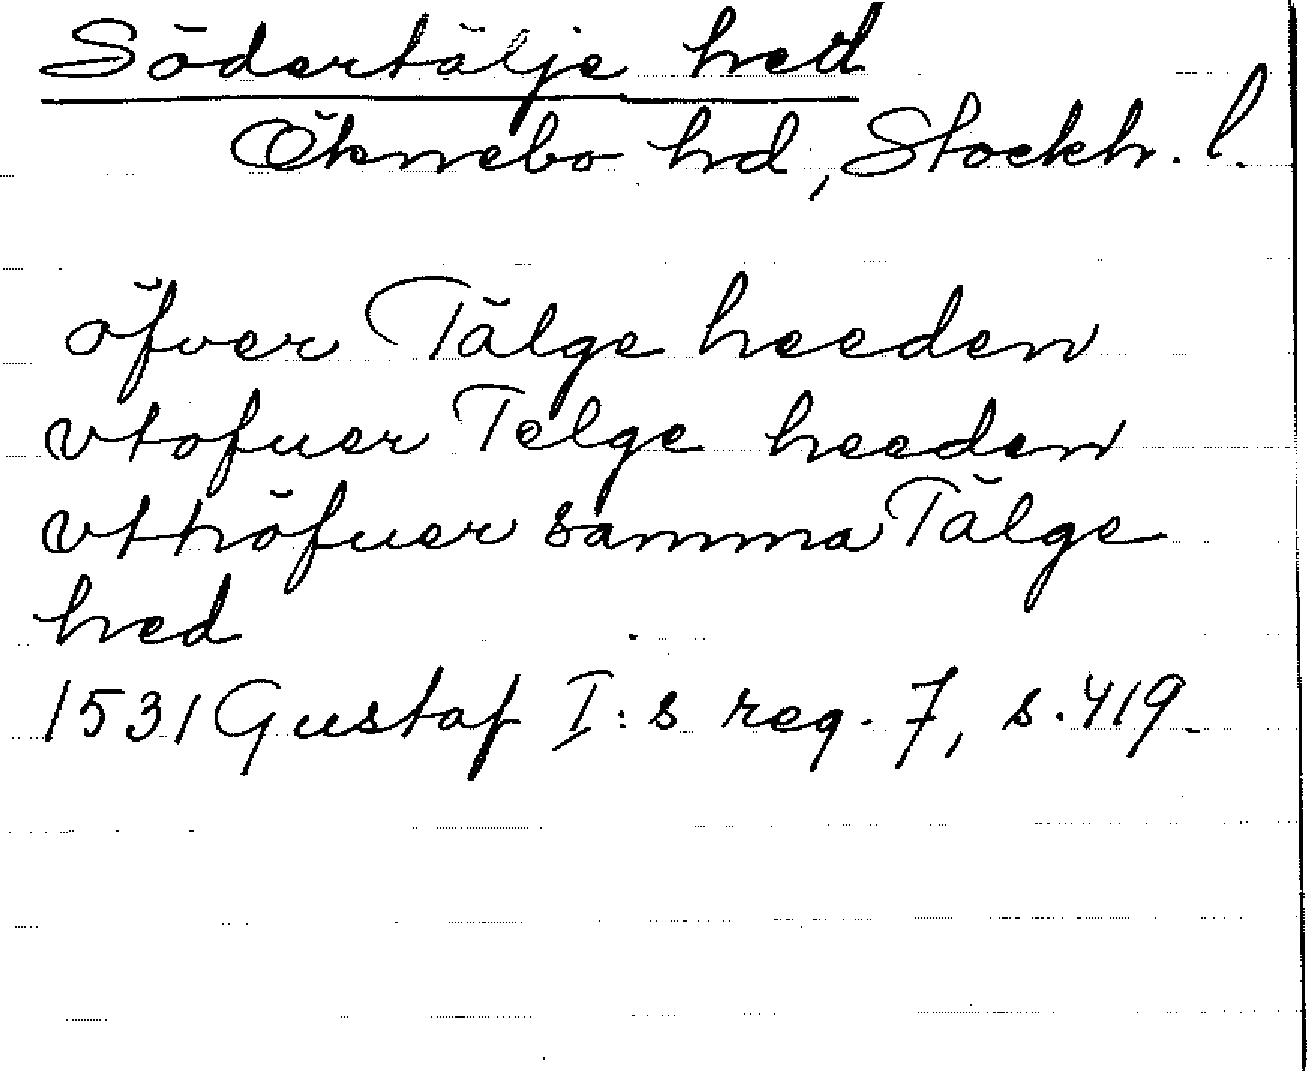 Södertälje hed
Öknebo hd, Stockh. l.
öfver Tälge heeden
vtofuer Telge heeden
vthöfuer samma Tälge
hed
1531 Gustaf I:s reg. 7, s. 419